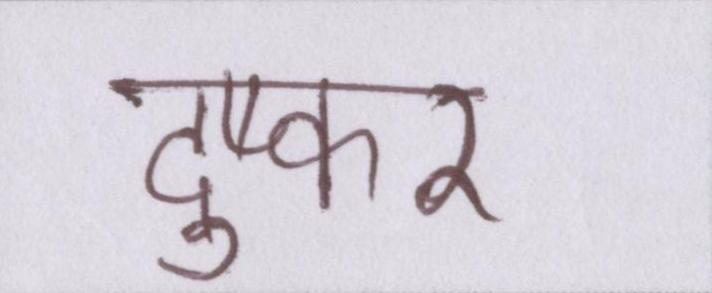 दुष्कर